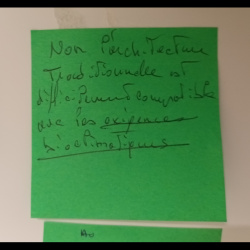 Non l'architecture
traditionnelle est
difficilement compatible
avec les exigences
bioclimatiques